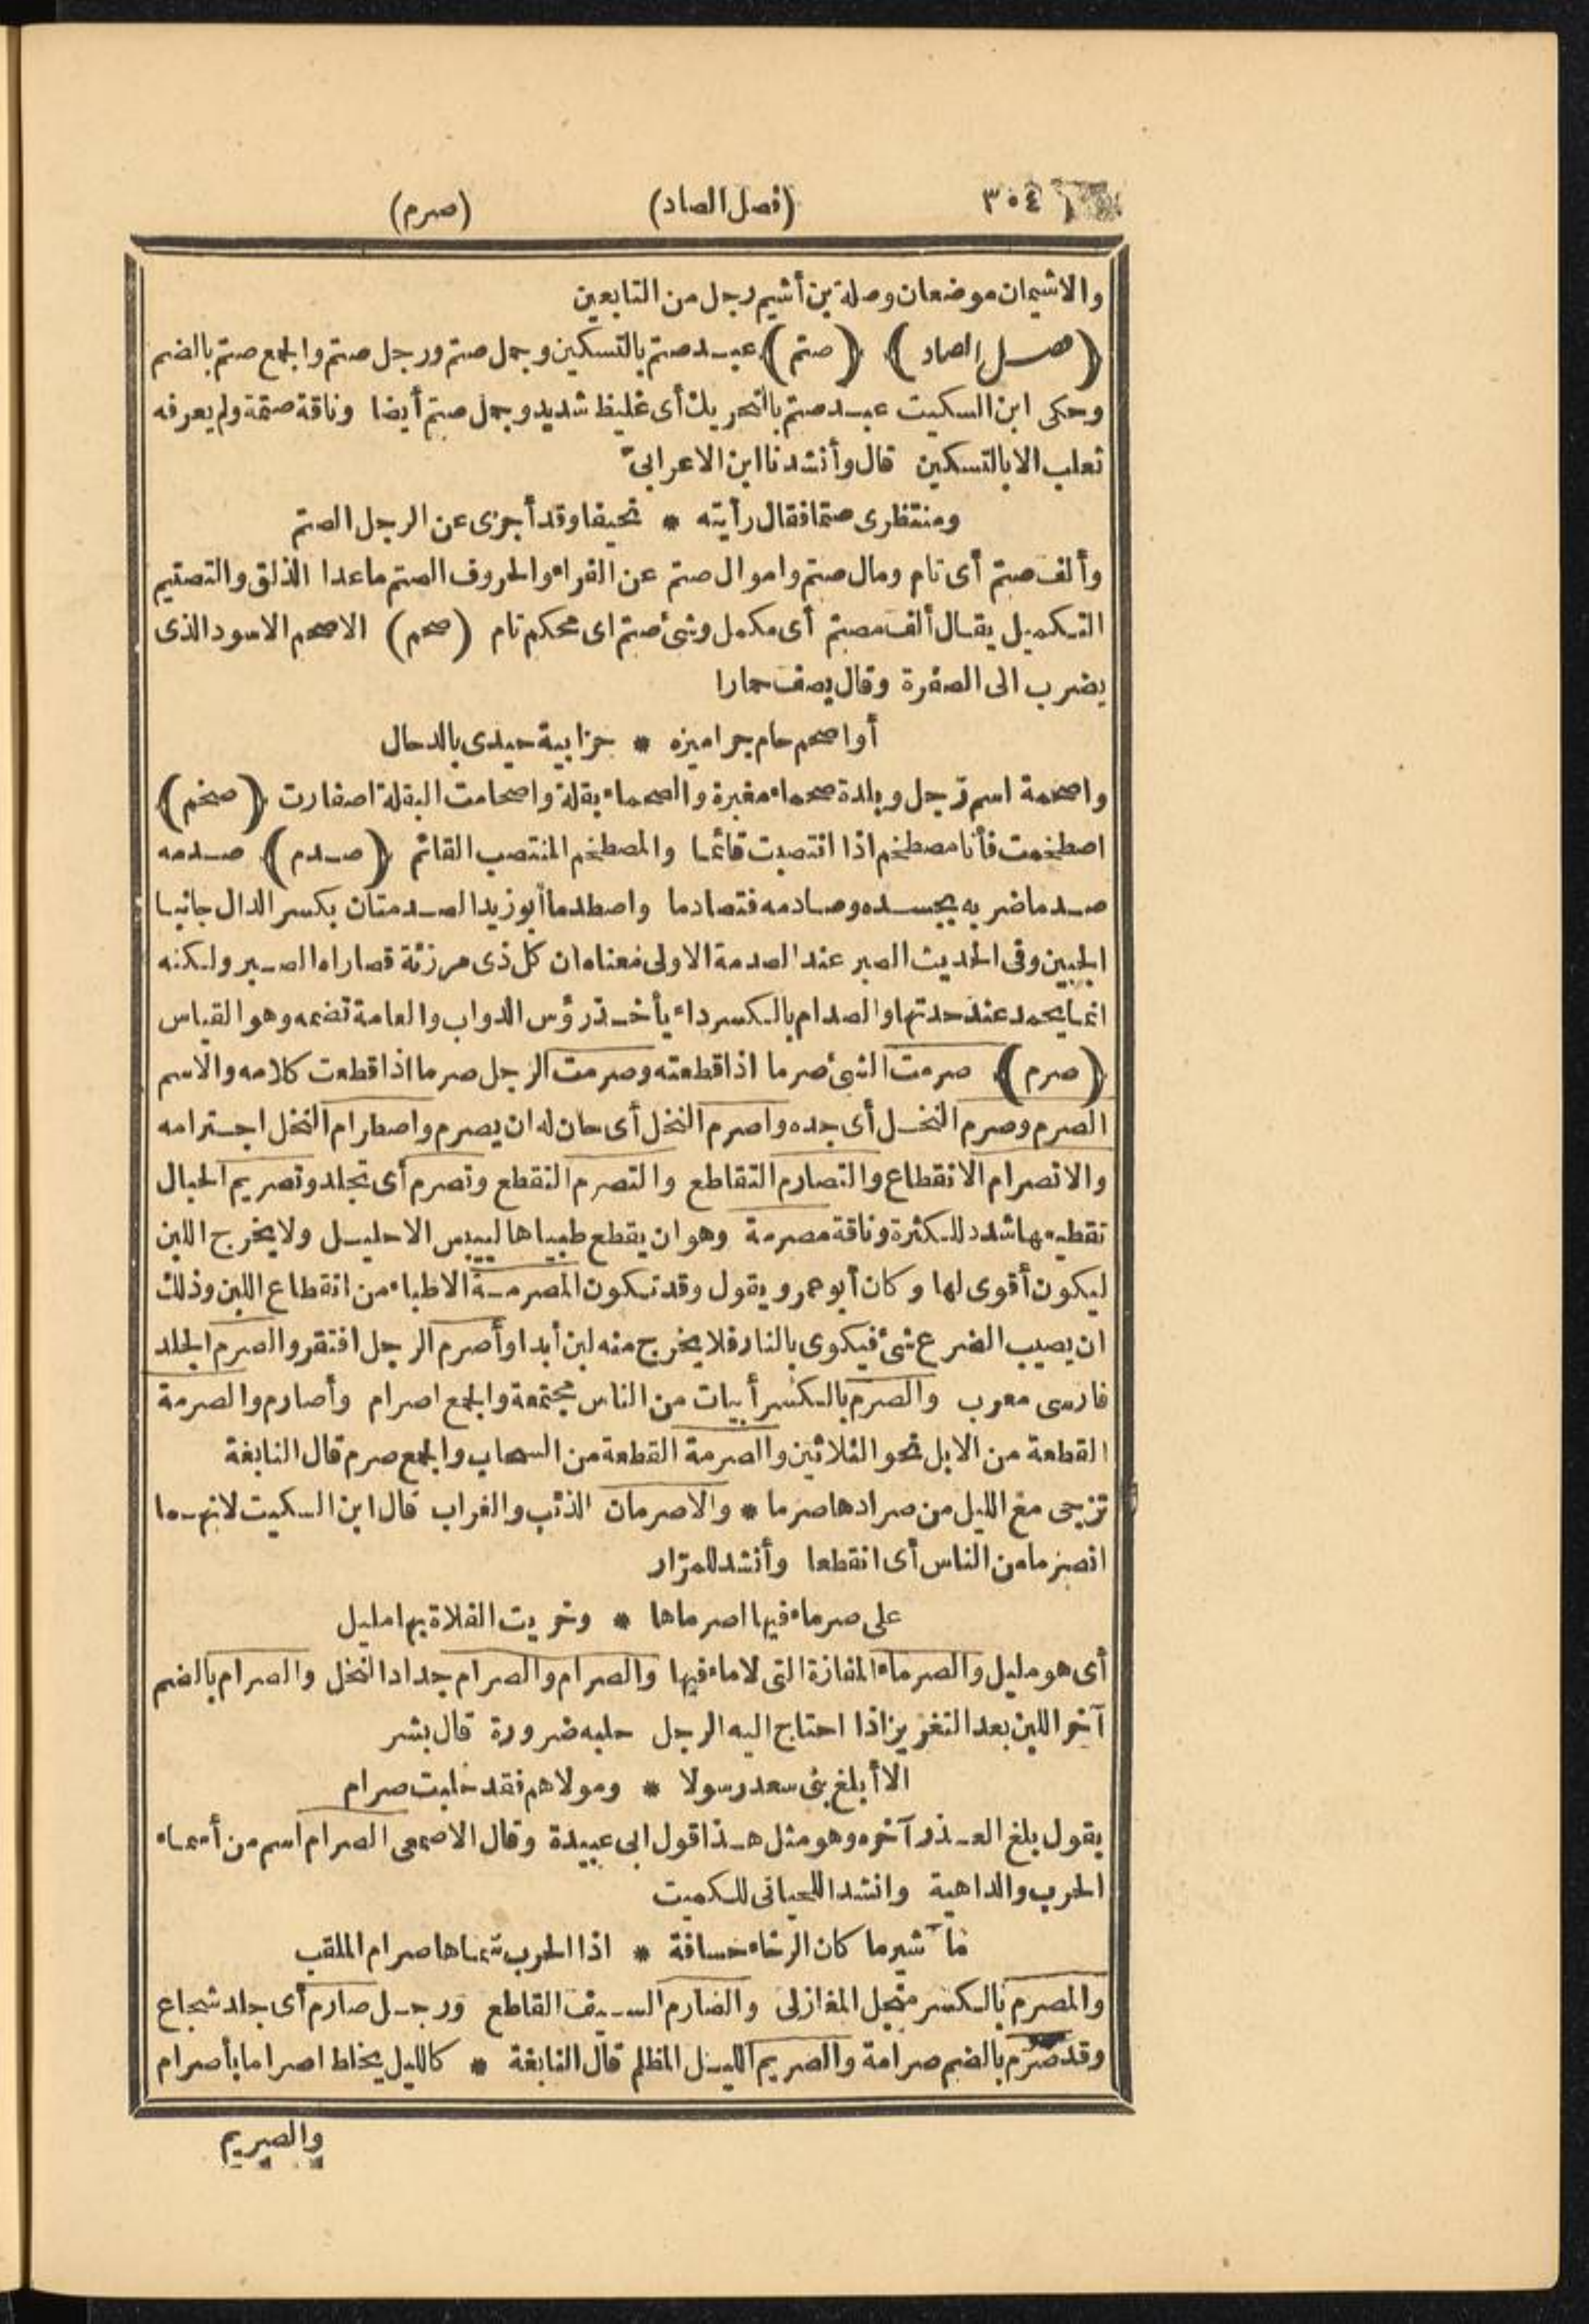 ٣٠٤ (فصل الصاد) (صرم)
والاشيمان موضعان وصلة بن أشيم رجل من التابعين
(فصل الصاد) (صتم) عبد صتم بالتسكين وجمل صتم ورجل صتم والجمع صتم بالضم
وحكى ابن السكيت عبد صتم بالتحريك أى غليظ شديد وجمل صتم أيضا وناقة صتمة ولم يعرفه
ثعلب الا بالتسكين قال وأنشدنا ابن الاعرابىّ
ومنتظرى صتما فقال رأيته * نحيفا وقد أجزى عن الرجل الصتم
وألف صتم أى تام ومال صتم واموال صتم عن الفراء والحروف الصتم ماعدا الذلق والتصتيم
التكميل يقال ألف مصتم أى مكمل وشئ صتم اى محكم تام (صحم) الاصحم الاسود الذى
يضرب الى الصفرة وقال يصف حمارا
أواصحم حام جراميزه * حزابية حيدى بالدحال
واصحمة اسم رجل وبلدة صحماء مغبرة والصحماء بقلة واصحامت البقلة اصفارت (صخم)
اصطخمت فأنا مصطخم اذا انتصبت قائما والمصطخم المنتصب القائم (صدم) صدمه
صدما ضربه بجسده وصادمه فتصادما واصطدما أبو زيد الصدمتان بكسر الدال جانبا
الجبين وفى الحديث الصبر عند الصدمة الاولى معناه ان كل ذى مرزئة قصاراه الصبر ولكنه
انما يحمد عند حدتها والصدام بالكسر داء يأخذ رؤس الدواب والعامة تضمه وهو القياس
(صرم) صرمت الشئ صرما اذا قطعته وصرمت الرجل صرما اذا قطعت كلامه والاسم
الصرم وصرم النخل أى جده واصرم النخل أى حان له ان يصرم واصطرام النخل اجترامه
والانصرام الانقطاع والتصارم التقاطع والتصرم التقطع وتصرم أى تجلد وتصريم الحبال
تقطيعها شدد للكثرة وناقة مصرمة وهو ان يقطع طبياها لييبس الاحليل ولا يخرج اللبن
ليكون أقوى لها وكان أبو عمرو يقول وقد تكون المصرمة الاطباء من انقطاع اللبن وذلك
ان يصيب الضرع شئ فيكوى بالنار فلا يخرج منه لبن أبدا وأصرم الرجل افتقر والصرم الجلد
فارسى معرب والصرم بالكسر أبيات من الناس مجتمعة والجمع اصرام وأصارم والصرمة
القطعة من الابل نحو الثلاثين والصرمة القطعة من السحاب والجمع صرم قال النابغة
تزجى مع الليل من صرادها صرما * والاصرمان الذئب والغراب قال ابن السكيت لانهما
انصرما من الناس أى انقطعا وأنشد للمرّار
على صرماء فيها اصرماها * وخريت الفلاة بها مليل
أى هو مليل والصرماء المفازة التى لا ماء فيها والصرام والصرام جداد النخل والصرام بالضم
آخر اللبن بعد التغريز اذا احتاج اليه الرجل حلبه ضرورة قال بشر
الا أبلغ بنى سعد رسولا * ومولاهم فقد حلبت صرام
يقول بلغ العذر آخره وهو مثل هذا قول ابى عبيدة وقال الاصمعى الصرام اسم من أسماء
الحرب والداهية وانشد اللحيانى للكميت
مآشير ما كان الرخاء حسافة * اذا الحرب سماها صرام الملقب
والمصرم بالكسر منجل المغازلى والصارم السيف القاطع ورجل صارم أى جلد شجاع
وقد صرم بالضم صرامة والصريم الليل المظلم قال النابغة * كالليل يخلط اصراما بأصرام
والصريم